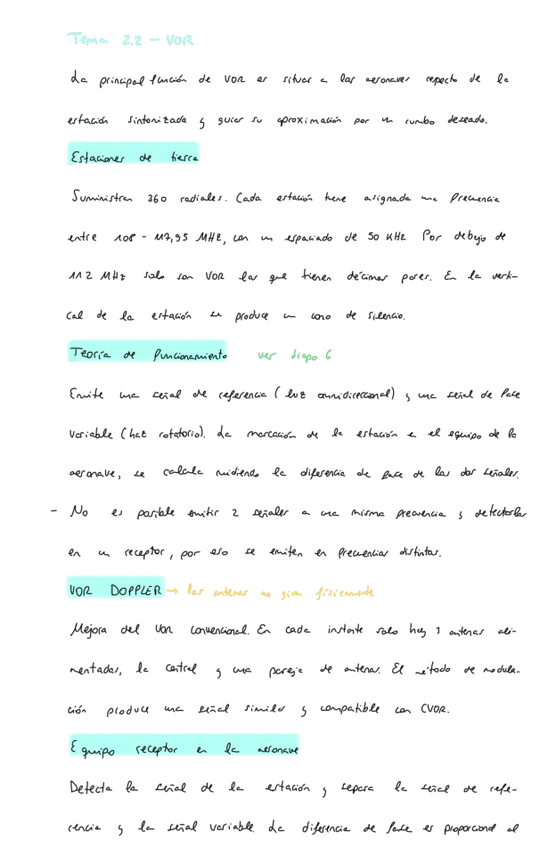 Tema 2.2 - VOR
La principal función de VOR es situar a las aeronaves respecto de la
estación sintonizada y guiar su aproximación por un rumbo deseado.
Estaciones de tierra
Suministran 360 radiales. Cada estación tiene asignada una frecuencia
entre 108 - 117,95 MHz, con un espaciado de 50 KHz Por debajo de
112 MHz solo son VOR las que tienen décimas pares. En la verti-
cal de la estación se produce un cono de silencio.
Teoría de funcionamiento ver diapo 6
Emite una señal de referencia (luz omnidireccional) y una señal de fase
variable (haz rotatorio). La marcación de la estación en el equipo de la
aeronave, se calcula midiendo la diferencia de fase de las dos señales.
- No es posible emitir 2 señales a una misma frecuencia y detectarlas
en un receptor, por eso se emiten en frecuencias distintas.
VOR DOPPLER → las antenas no giran físicamente
Mejora del VOR convencional. En cada instante solo hay 3 antenas ali-
mentadas, la central y una pareja de antenas. El método de modula-
ción produce una señal similar y compatible con CVOR.
Equipo receptor en la aeronave
Detecta la señal de la estación y separa la señal de refe-
rencia y la señal variable. La diferencia de fase es proporcional al